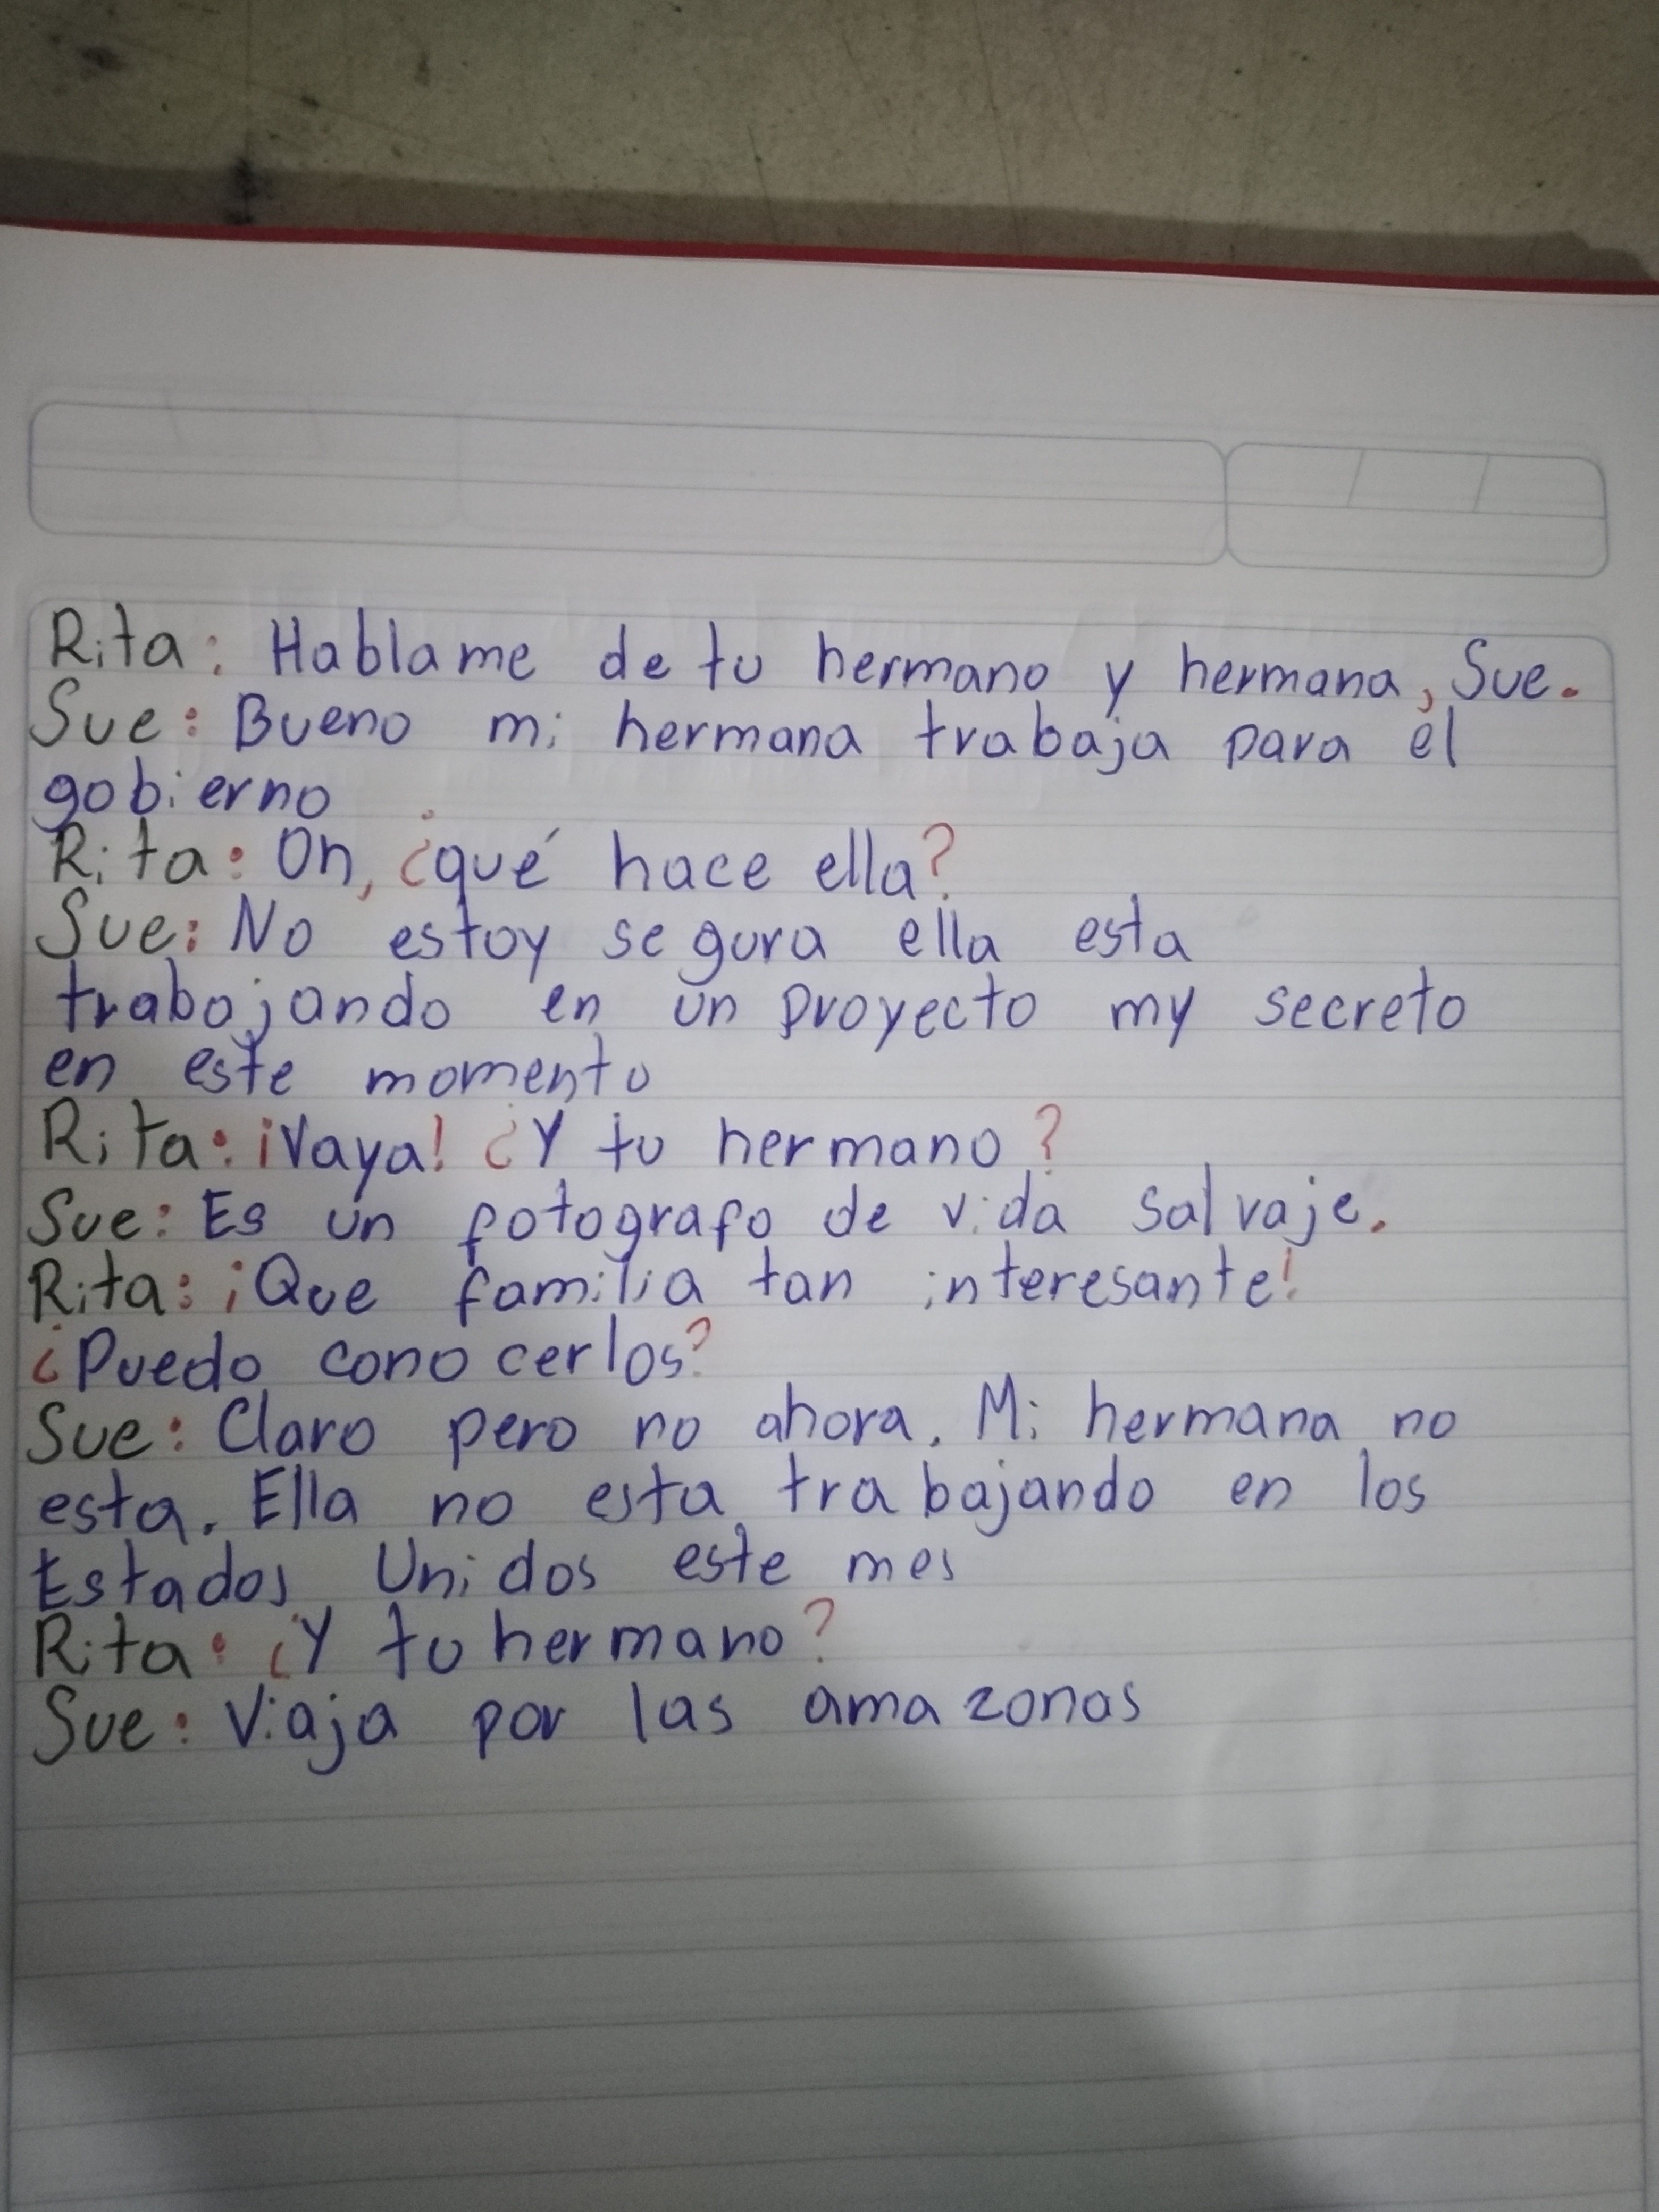 Rita: Hablame de tu hermano y hermana, Sue.
Sue: Bueno mi hermana trabaja para el
gobierno
Rita: Oh, ¿qué hace ella?
Sue: No estoy segura ella esta
trabajando en un proyecto my secreto
en este momento
Rita: ¡Vaya! ¿Y tu hermano?
Sue: Es un fotografo de vida salvaje.
Rita: ¡Que familia tan interesante!
¿Puedo conocerlos?
Sue: Claro pero no ahora. Mi hermana no
esta. Ella no esta trabajando en los
Estados Unidos este mes
Rita: ¿Y tu hermano?
Sue: Viaja por las amazonas